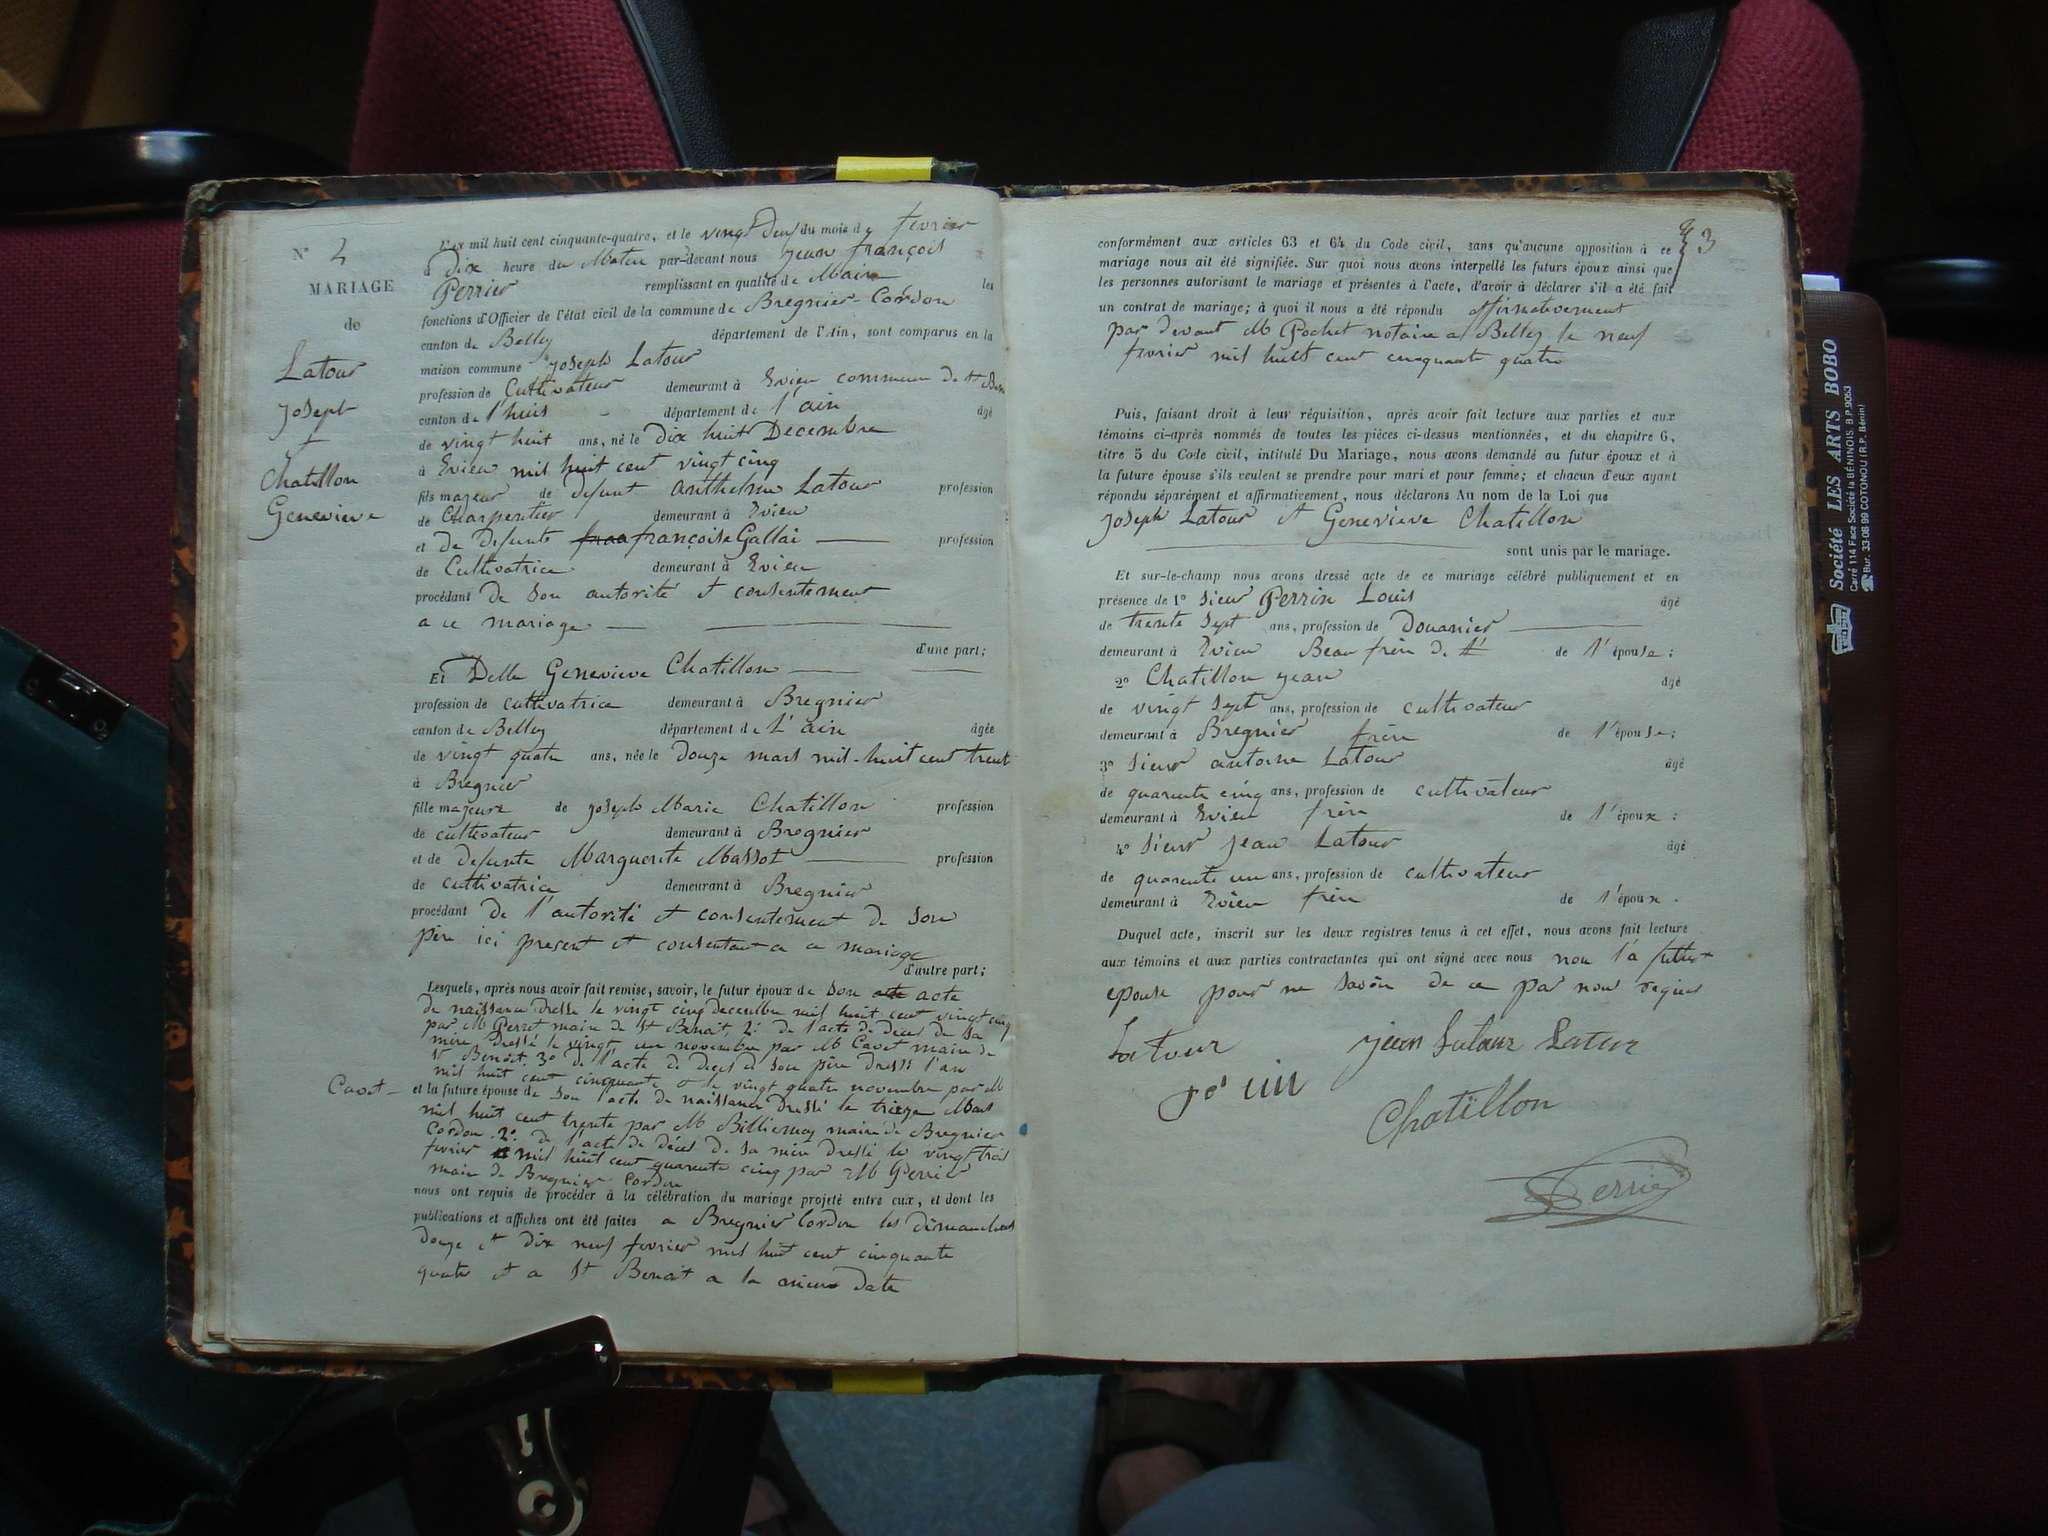 N° 4
MARIAGE
de
Latour
Joseph
et
Chatillon
Genevieve
L'an mil huit cent cinquante-quatre, et le vingt deux du mois de fevrier
à dix heure du Matin par-devant nous jean françois
Perrier remplissant en qualité de Maire les
fonctions d'Officier de l'état civil de la commune de Bregnier-Cordon
canton de Belley département de l'Ain, sont comparus en la
maison commune joseph Latour
profession de Cultivateur demeurant à Evieu commune de St Ben
canton de l'huis département de l'ain âgé
de vingt huit ans, né le dix huit Decembre
à Evieu mil huit cent vingt cinq
fils majeur de defunt anthelme Latour profession
de Charpentier demeurant à Evieu
et de defunte françoise Gallai profession
de Cultivatrice demeurant à Evieu
procédant de son autorité et consentement
a ce mariage
d'une part;
Et Delle Genevieve Chatillon
profession de cultivatrice demeurant à Bregnier
canton de Belley département de l'ain âgée
de vingt quatre ans, née le douze mars mil-huit cent trente
à Bregnier
fille majeure de joseph Marie Chatillon profession
de cultivateur demeurant à Bregnier
et de defunte Marguerite Massot profession
de cultivatrice demeurant à Bregnier
procédant de l'autorité et consentement de son
père ici present et consentant a ce mariage
d'autre part;
Lesquels, après nous avoir fait remise, savoir, le futur époux de son acte
de naissance dressé le vingt cinq decembre mil huit cent vingt cinq
par M Perret maire de St Benoit, 2° de l'acte de deces de sa
mère dressé le vingt un novembre par M Cavot maire de
St Benoit. 3° de l'acte de deces de son père dressé l'an
mil huit cent cinquante et le vingt quatre novembre par M
Cavot
et la future épouse de son acte de naissance dressé le treize Mars
mil huit cent trente par M Billiemaz maire de Bregnier
Cordon. 2° de l'acte de décès de sa mère dressé le vingt trois
fevrier mil huit cent quarente cinq par M Perrier
maire de Bregnier Cordon
nous ont requis de procéder à la célébration du mariage projeté entre eux, et dont les
publications et affiches ont été faites a Bregnier Cordon les dimanches
douze et dix neuf fevrier mil huit cent cinquante
quatre et a St Benoit a la même date
3
conformément aux articles 63 et 64 du Code civil, sans qu'aucune opposition à ce
mariage nous ait été signifiée. Sur quoi nous avons interpellé les futurs époux ainsi que
les personnes autorisant le mariage et présentes à l'acte, d'avoir à déclarer s'il a été fait
un contrat de mariage; à quoi il nous a été répondu affirmativement
par devant M Pochet notaire a Belley le neuf
fevrier mil huit cent cinquante quatre
Puis, faisant droit à leur réquisition, après avoir fait lecture aux parties et aux
témoins ci-après nommés de toutes les pièces ci-dessus mentionnées, et du chapitre 6,
titre 5 du Code civil, intitulé Du Mariage, nous avons demandé au futur époux et à
la future épouse s'ils veulent se prendre pour mari et pour femme; et chacun d'eux ayant
répondu séparément et affirmativement, nous déclarons Au nom de la Loi que
joseph Latour et Genevieve Chatillon
sont unis par le mariage.
Et sur-le-champ nous avons dressé acte de ce mariage célébré publiquement et en
présence de 1° sieur Perrin Louis âgé
de trente sept ans, profession de Douanier
demeurant à Evieu Beau frère de de l'épouse;
2° Chatillon jean âgé
de vingt sept ans, profession de cultivateur
demeurant à Bregnier frère de l'épouse;
3° sieur antoine Latour âgé
de quarente cinq ans, profession de cultivateur
demeurant à Evieu frère de l'époux;
4° sieur jean Latour âgé
de quarente un ans, profession de cultivateur
demeurant à Evieu frère de l'époux.
Duquel acte, inscrit sur les deux registres tenus à cet effet, nous avons fait lecture
aux témoins et aux parties contractantes qui ont signé avec nous non la future
epouse pour ne savoir de ce par nous requis
Latour
jean Latour Latur
Chatillon
Perrier
Société LES ARTS BOBO
Carré 114 Face Société la BÉNINOIS. B.P.9053
Bur. 33-06 99 COTONOU (R.P. Bénin)